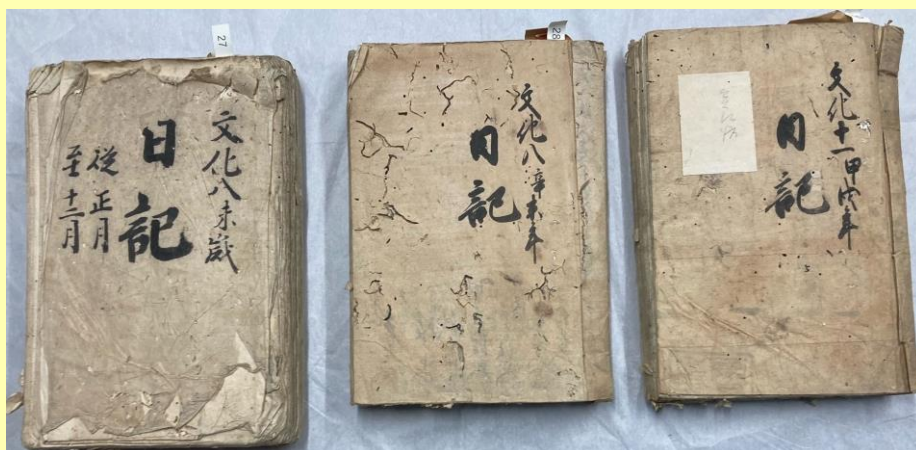 27
文化八未歳
日記
従正月
至十二月
28
文化八辛未年
日記
文化十一甲戌年
日記